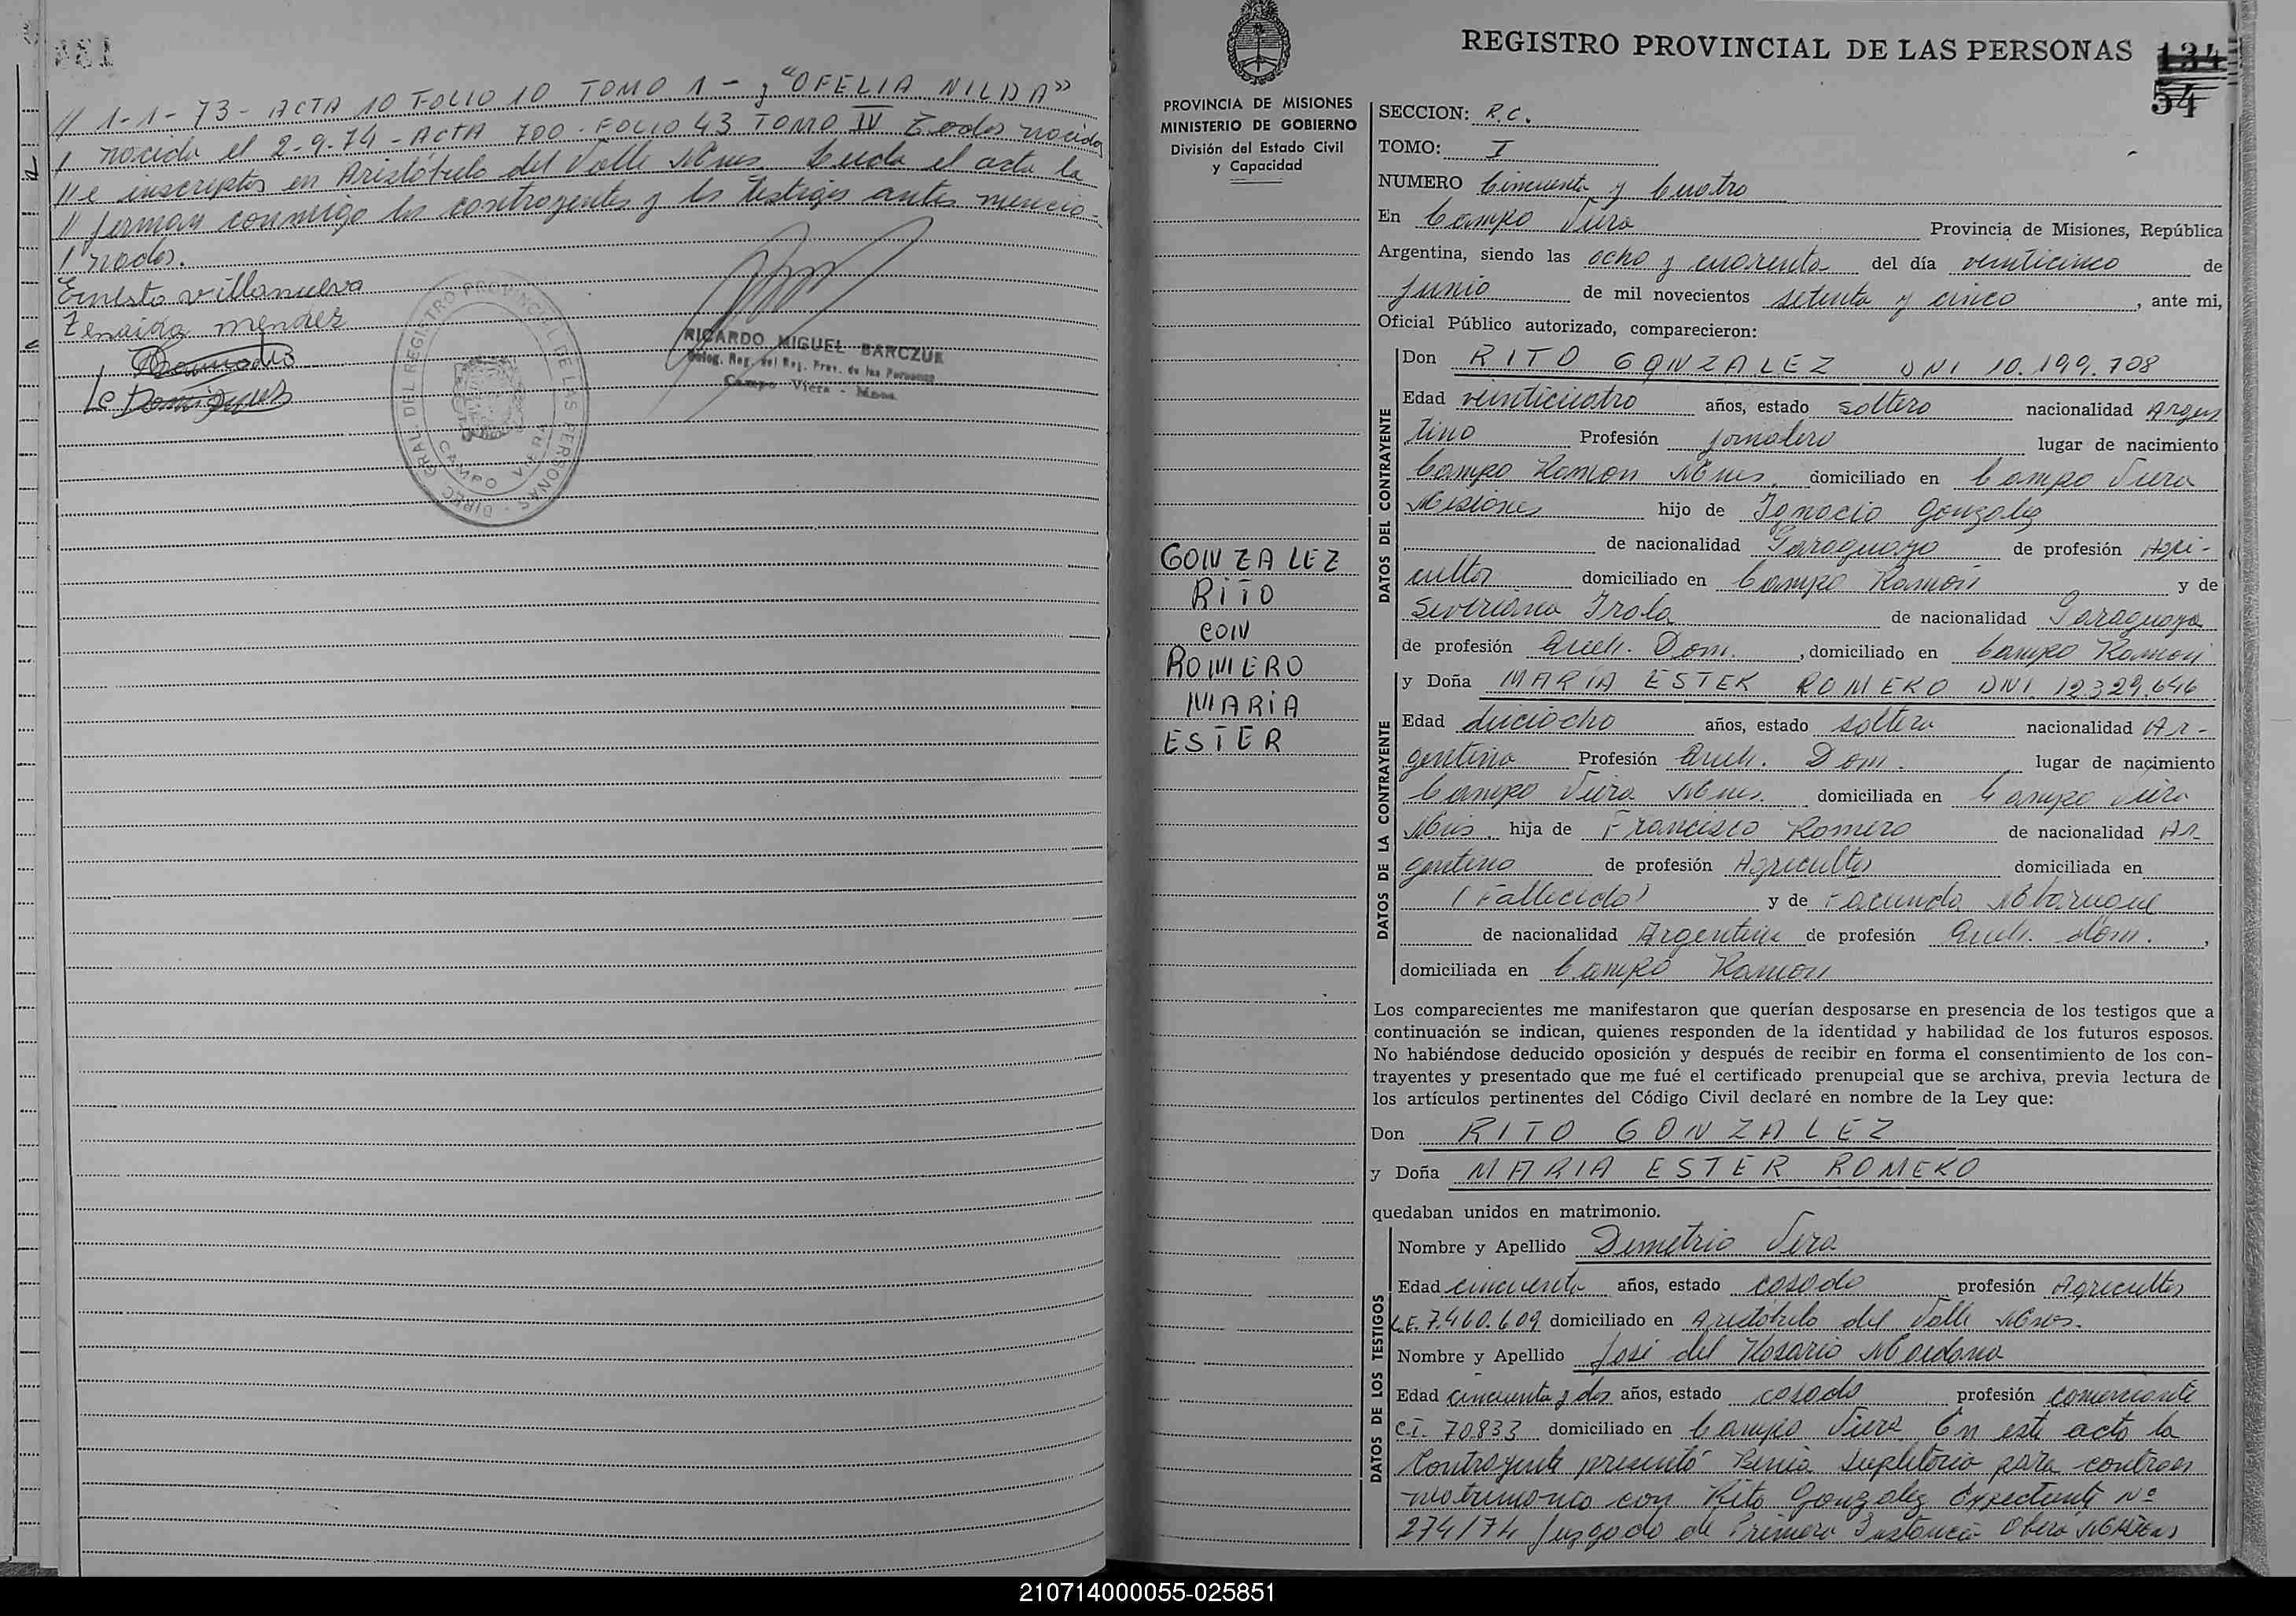 // 1-1-73- ACTA 10 FOLIO 10 TOMO 1 - y "OFELIA NILDA"
/ nacida el 2-9-74 - ACTA 700 - FOLIO 43 TOMO IV Todos nacidos
// e inscriptos en Aristóbulo del Valle Mnes. Leida el acta la
// firman conmigo los contrayentes y los testigos antes mencio-
/ nados.
Ernesto Villanueva
Zenaida mendez
RICARDO MIGUEL BARCZUK
Deleg. Reg. del Reg. Prov. de las Personas
Campo Viera - Mnes.
DIREC. GRAL. DEL REGISTRO PROVINCIAL DE LAS PERSONAS
CAMPO VIERA
REGISTRO PROVINCIAL DE LAS PERSONAS
134
54
PROVINCIA DE MISIONES
MINISTERIO DE GOBIERNO
División del Estado Civil
y Capacidad
GONZALEZ
RITO
CON
ROMERO
MARIA
ESTER
SECCION: R.C.
TOMO: I
NUMERO Cincuenta y Cuatro
En Campo Viera Provincia de Misiones, República
Argentina, siendo las ocho y cuarenta del día veinticinco de
Junio de mil novecientos setenta y cinco, ante mi,
Oficial Público autorizado, comparecieron:
DATOS DEL CONTRAYENTE
Don RITO GONZALEZ DNI 10.199.708
Edad veinticuatro años, estado soltero nacionalidad Argen
tino Profesión Jornalero lugar de nacimiento
Campo Ramon Mnes. domiciliado en Campo Viera
Misiones hijo de Ignacio Gonzalez
de nacionalidad Paraguayo de profesión Agri-
cultor domiciliado en Campo Ramón y de
Severiana Irala de nacionalidad Paraguaya
de profesión Queh. Dom., domiciliado en Campo Ramon
DATOS DE LA CONTRAYENTE
y Doña MARIA ESTER ROMERO DNI. 12.329.646
Edad dieciocho años, estado soltera nacionalidad Ar-
gentina Profesión Queh. Dom. lugar de nacimiento
Campo Viera Mnes. domiciliada en Campo Viera
Mnes. hija de Francisco Romero de nacionalidad Ar
gentino de profesión Agricultor domiciliada en
(Fallecido) y de Facunda
de nacionalidad Argentina de profesión Queh. dom.,
domiciliada en Campo Ramon
Los comparecientes me manifestaron que querían desposarse en presencia de los testigos que a
continuación se indican, quienes responden de la identidad y habilidad de los futuros esposos.
No habiéndose deducido oposición y después de recibir en forma el consentimiento de los con-
trayentes y presentado que me fué el certificado prenupcial que se archiva, previa lectura de
los artículos pertinentes del Código Civil declaré en nombre de la Ley que:
Don RITO GONZALEZ
y Doña MARIA ESTER ROMERO
quedaban unidos en matrimonio.
DATOS DE LOS TESTIGOS
Nombre y Apellido Demetrio Vera
Edad cincuenta años, estado casado profesión Agricultor
L.E. 7.460.609 domiciliado en Aristóbulo del Valle Mnes.
Nombre y Apellido José del Rosario
Edad cincuenta y dos años, estado casado profesión comerciante
C.I. 70.833 domiciliado en Campo Viera En este acto la
Contrayente presentó Venia Supletoria para contraer
matrimonio con Rito Gonzalez Expediente Nº
274/74 Juzgado de Primera Instancia Obera Misiones
210714000055-025851